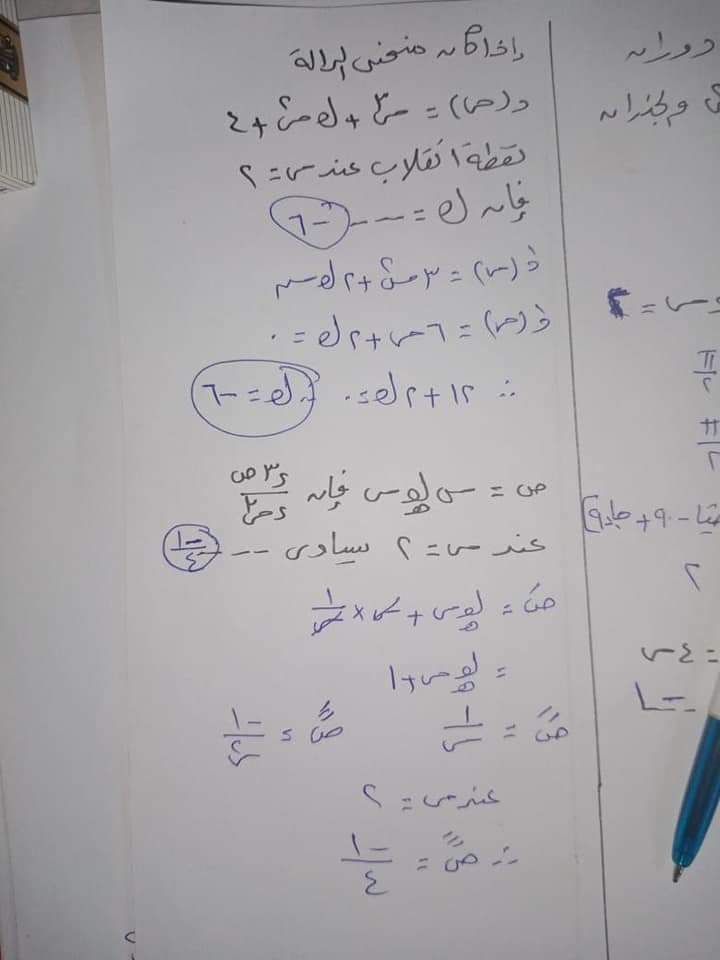 إذا كان منحنى الدالة
د(س) = س٣ + ك س٢ + ٤
نقطة انقلاب عند س = ٢
فإن ك = --- -٦
دَ(س) = ٣س٢ + ٢ك س
دً(س) = ٦س + ٢ك = ٠
∴ ١٢ + ٢ك = ٠ ∴ ك = -٦
ص = س لو_هـ س فإن د٣ص/دس٣
عند س = ٢ يساوى --- -١/٤
صَ = لو_هـ س + س × ١/س
= لو_هـ س + ١
صً = ١/س    صًَ = -١/س٢
عند س = ٢
∴ صًَ = -١/٤
دوران
وجذران
س = ٢
π/٢
π/٢
= ٤س
-١